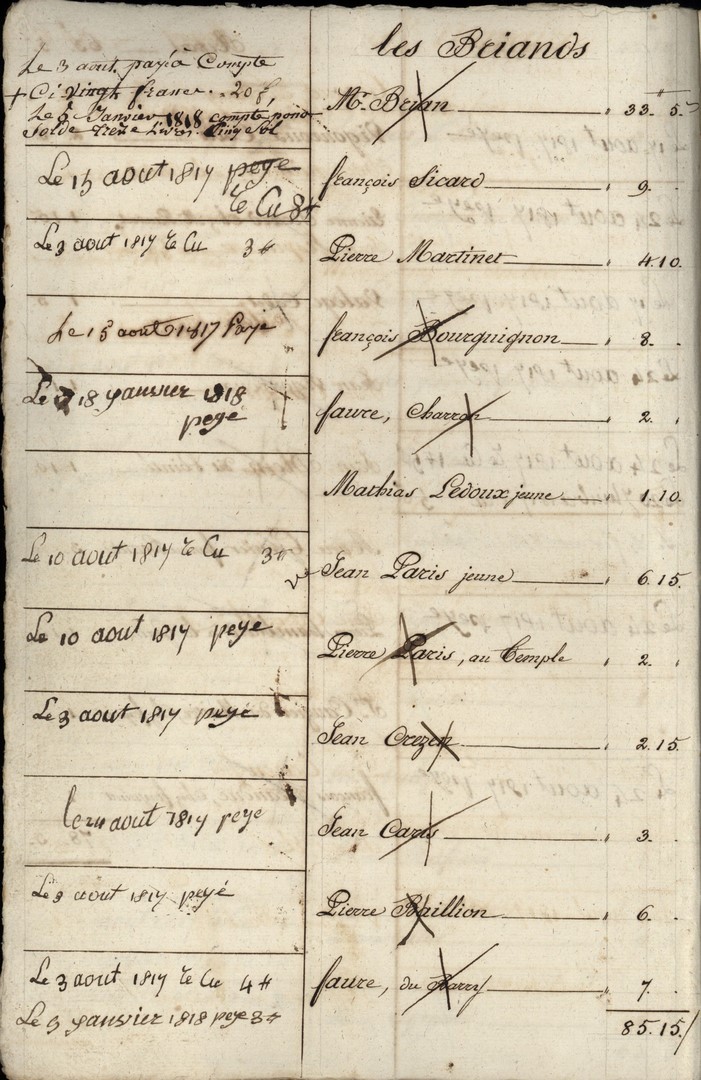 les Briands
Le 3 aout payé à Compte
+ Ci vingt francs .. 20 f,
Le 5 Janvier 1818 compte pour
Solde treize Livres Cinq Sol
Mr. Brian 33. 5.
Le 15 aout 1817 peye
re Cu 8#
françois Sicard 9.
Le 3 aout 1817 re Cu 3#
Pierre Martinet 4.10.
Le 15 aout 1817 Payé
françois Bourguignon 8.
Le 18 janvier 1818
peye
faure, Charron 2.
Mathias Ledoux jeune 1.10.
Le 10 aout 1817 re Cu 3#
Jean Paris jeune 6.15.
Le 10 aout 1817 peye
Pierre Paris, au Temple 2.
Le 3 aout 1817 peye
Jean Crezen 2.15.
le 24 aout 1817 peye
Jean Caris 3.
Le 3 aout 1817 peyé
Pierre Baillion 6.
Le 3 aout 1817 re Cu 4#
Le 3 janvier 1818 peye 3#
faure, du Barry 7.
85.15/